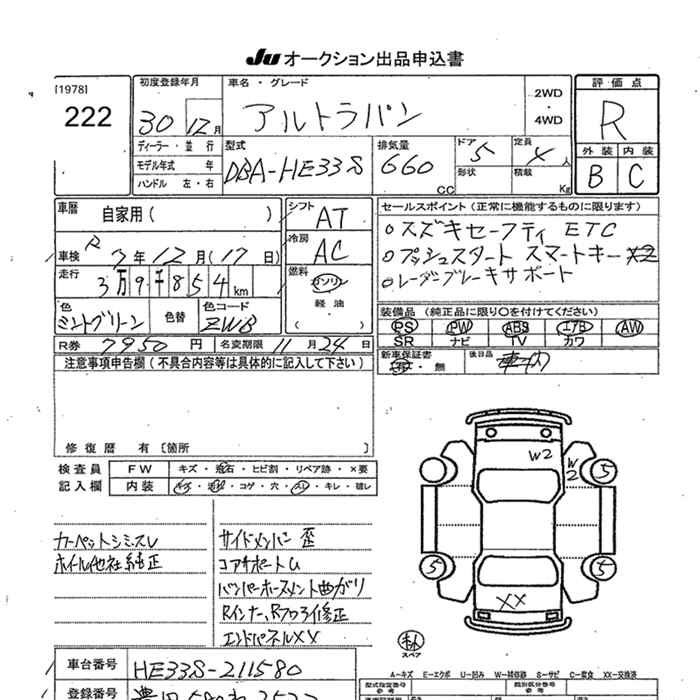 Ju オークション出品申込書
[1978]
222
初度登録年月
30 12月
車名・グレード
アルトラパン
2WD
・
4WD
評価点
R
外装 内装
B C
ディーラー・並行
モデル年式 年
ハンドル 左・右
型式
DBA-HE33S
排気量
660
CC
ドア
5
定員
4人
形状
積載
Kg
車歴
自家用( )
車検 R 3年12月(17日)
走行 3万9千854km
色
ミントグリーン
色替
色コード
ZWB
シフト
AT
冷房
AC
燃料
ガソリン
軽油
( )
セールスポイント(正常に機能するものに限ります)
○スズキセーフティ ETC
○プッシュスタート スマートキー×2
○レーダーブレーキサポート
装備品(純正品に限り○を付けてください)
PS PW ABS エアB AW
SR ナビ TV カワ
R券 7950円
名変期限 11月24日
新車保証書
・無
後日品
注意事項申告欄(不具合内容等は具体的に記入して下さい)
修復歴 有[箇所 ]
検査員
記入欄
FW キズ・飛石・ヒビ割・リペア跡・×要
内装 キズ・汚・コゲ・穴・スレ・キレ・破レ
カーペットシミ、スレ
ホイル他社純正
サイドメンバー歪
コアサポートU
バンパーホースメント曲がり
Rインナー、Rフロア修正
エンドパネルXX
W2
W2
5
5
5
XX
スペア
A=キズ E=エクボ U=凹み W=補修跡 S=サビ C=腐食 XX=交換済
車台番号 HE33S-211580
登録番号
型式指定番号
類別区分番号